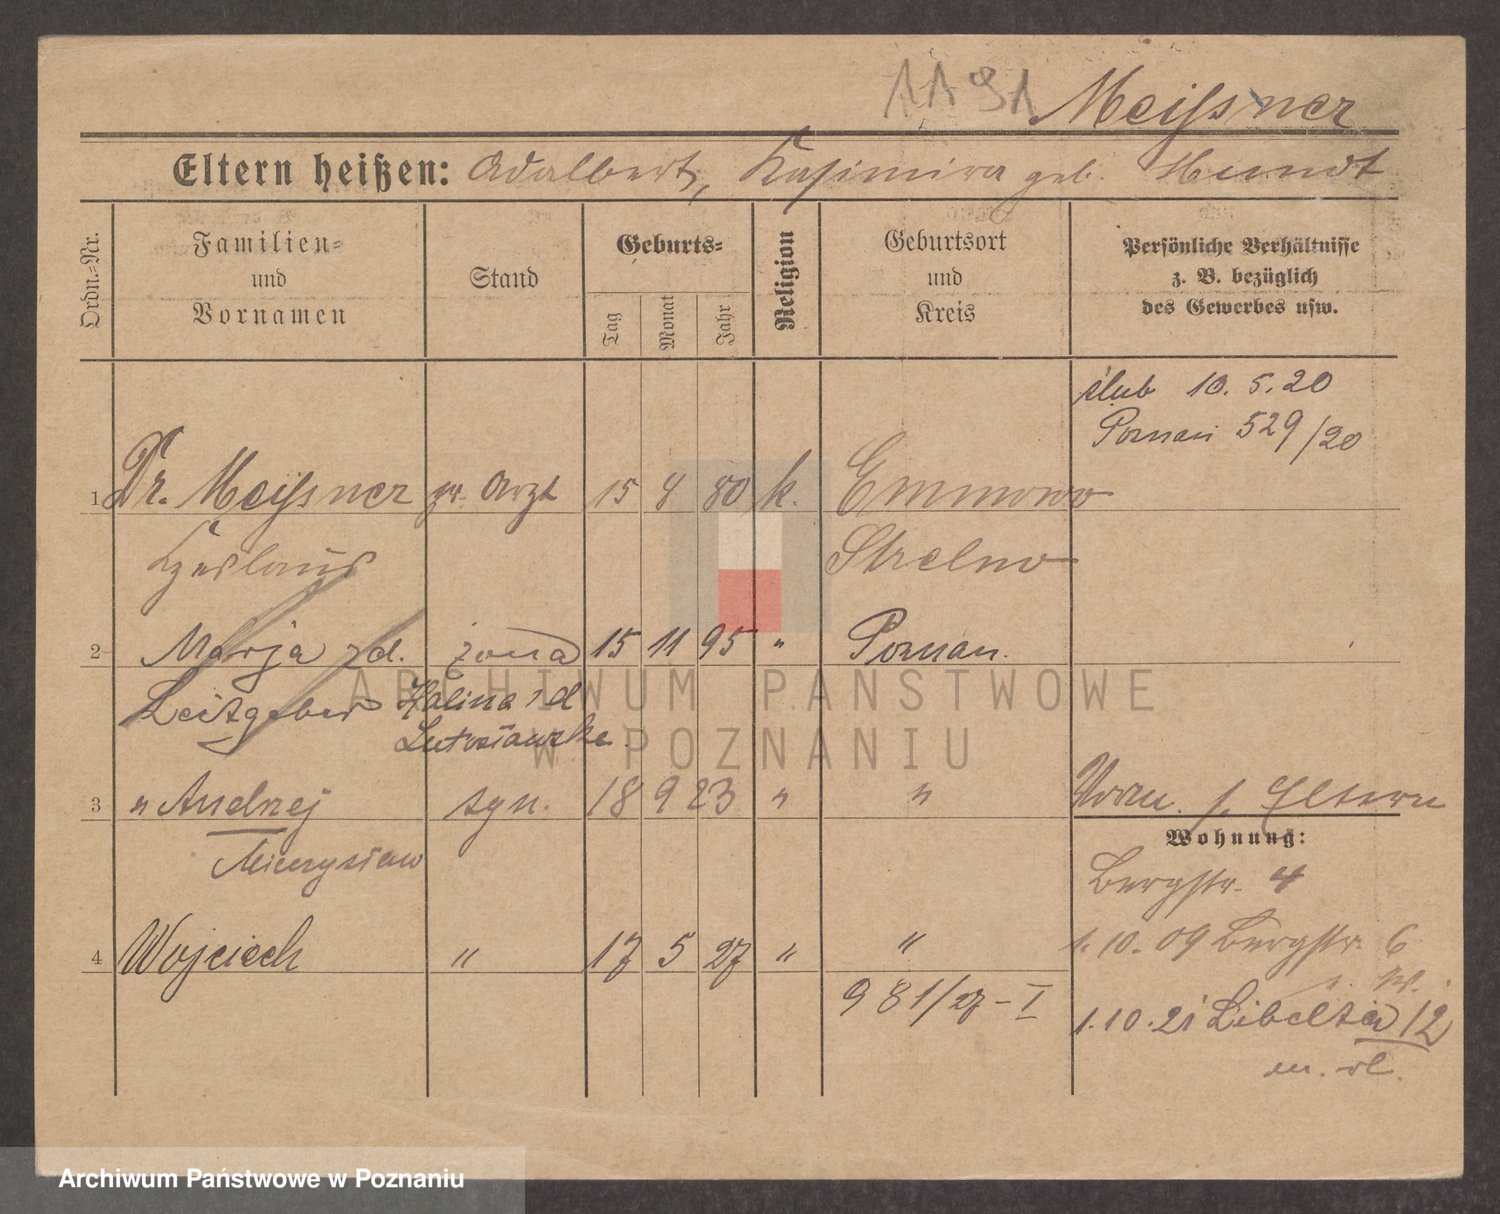 1191 Meißner
Eltern heißen: Adalbert, Kasimira geb. Hundt
Ordn.-Nr.
Familien-
und
Vornamen
Stand
Geburts-
Tag
Monat
Jahr
Religion
Geburtsort
und
Kreis
Persönliche Verhältnisse
z. B. bezüglich
des Gewerbes usw.
ślub 10. 5. 20
Poznań 529/20
1 Dr. Meißner pr. Arzt 15 8 80 k. Emmowo
Czeslaus Strelno
2 Marja zd. żona 15 11 95 " Poznań.
Leitgeber Halina zd
Lutosławska.
3 " Andrzej syn. 18 9 23 " " Vorm. s. Eltern
Mieczysław
Wohnung:
Bergstr. 4
4 Wojciech " 17 5 27 " " 1. 10. 09 Bergstr. 6
981/27 - I
1. 10. 21 Libelta 12
m. wł.
ARCHIWUM PAŃSTWOWE
W POZNANIU
Archiwum Państwowe w Poznaniu